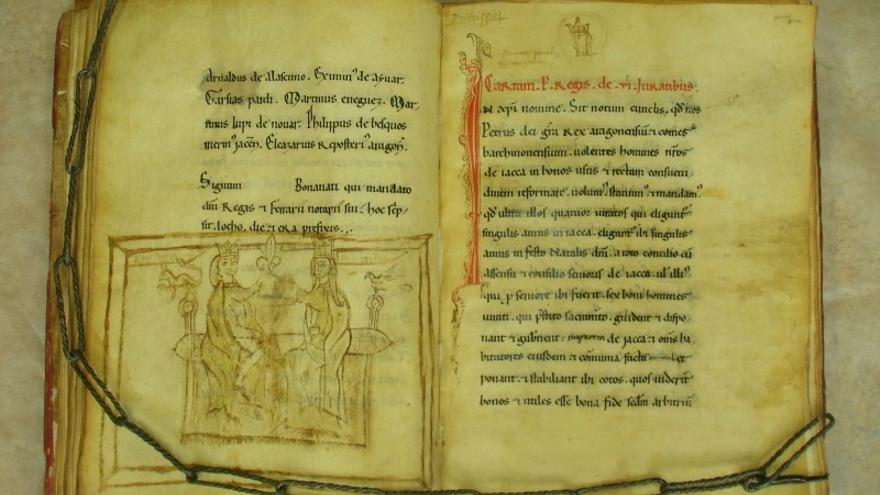 Arnaldus de alascuno. Eximin⁹ de aẏuar.
Garsias pardi. Martinus eneguez. Mar-
tinus lupi de nouar. Philippus de besquos
merin⁹ jaccẽ. Eleazarius Reposteri⁹ aragoñ.
Signum Bonanati qui mandato
dñi Regis ⁊ ferrarii notarii sui hoc
sit. loco, die ⁊ era prefixis.
Cartam. P. Regis. de. vi. Juratibus.
nomine. Sit notum cunctis. qđ nos
Petrus dei gr̃a Rex aragonensiũ ⁊ comes
barchinonensium. uolentes homines nr̃os
de iacca in bonos usus ⁊ rectum consuetu
dinem reformare. uolum⁹ statuim⁹ ⁊ mandam⁹
qđ ultra illos quatuor iuratos qui eligunt̃
singulis annis in iacca. eligant̃ ibi singulis
annis in festo Natalis dñi. a toto concilio cũ
assensu ⁊ consilio senioris de iacca. ul̃ illi⁹
qui p seniore ibi fuerit. sex boni homines
iurati. qui p̃stito sacram̃to. guident ⁊ dispo-
nant ⁊ gub̃nent. de iacca ⁊ om̃s ha
bitatores eiusdem ⁊ cõmunia et
ponant. ⁊ stabiliant ibi cotos. quos uiderit̃
bonos ⁊ utiles esse bona fide sc̃dm arbitriũ